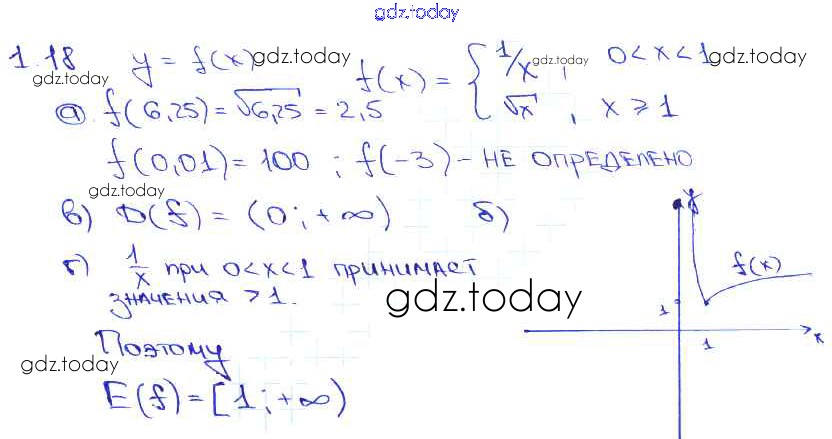 gdz.today
1.18 y = f(x) gdz.today f(x) = { 1/x gdz.today , 0 < x < 1 gdz.today
gdz.today
а) f(6,25) = √6,25 = 2,5 √x , x ⩾ 1
f(0,01) = 100 ; f(-3) - НЕ ОПРЕДЕЛЕНО
gdz.today
в) D(f) = (0 ; + ∞) б)
y
f(x)
г) 1/x при 0 < x < 1 ПРИНИМАЕТ
ЗНАЧЕНИЯ > 1. gdz.today
1
1 x
Поэтому
gdz.today
E(f) = [1 ; + ∞)
gdz.today